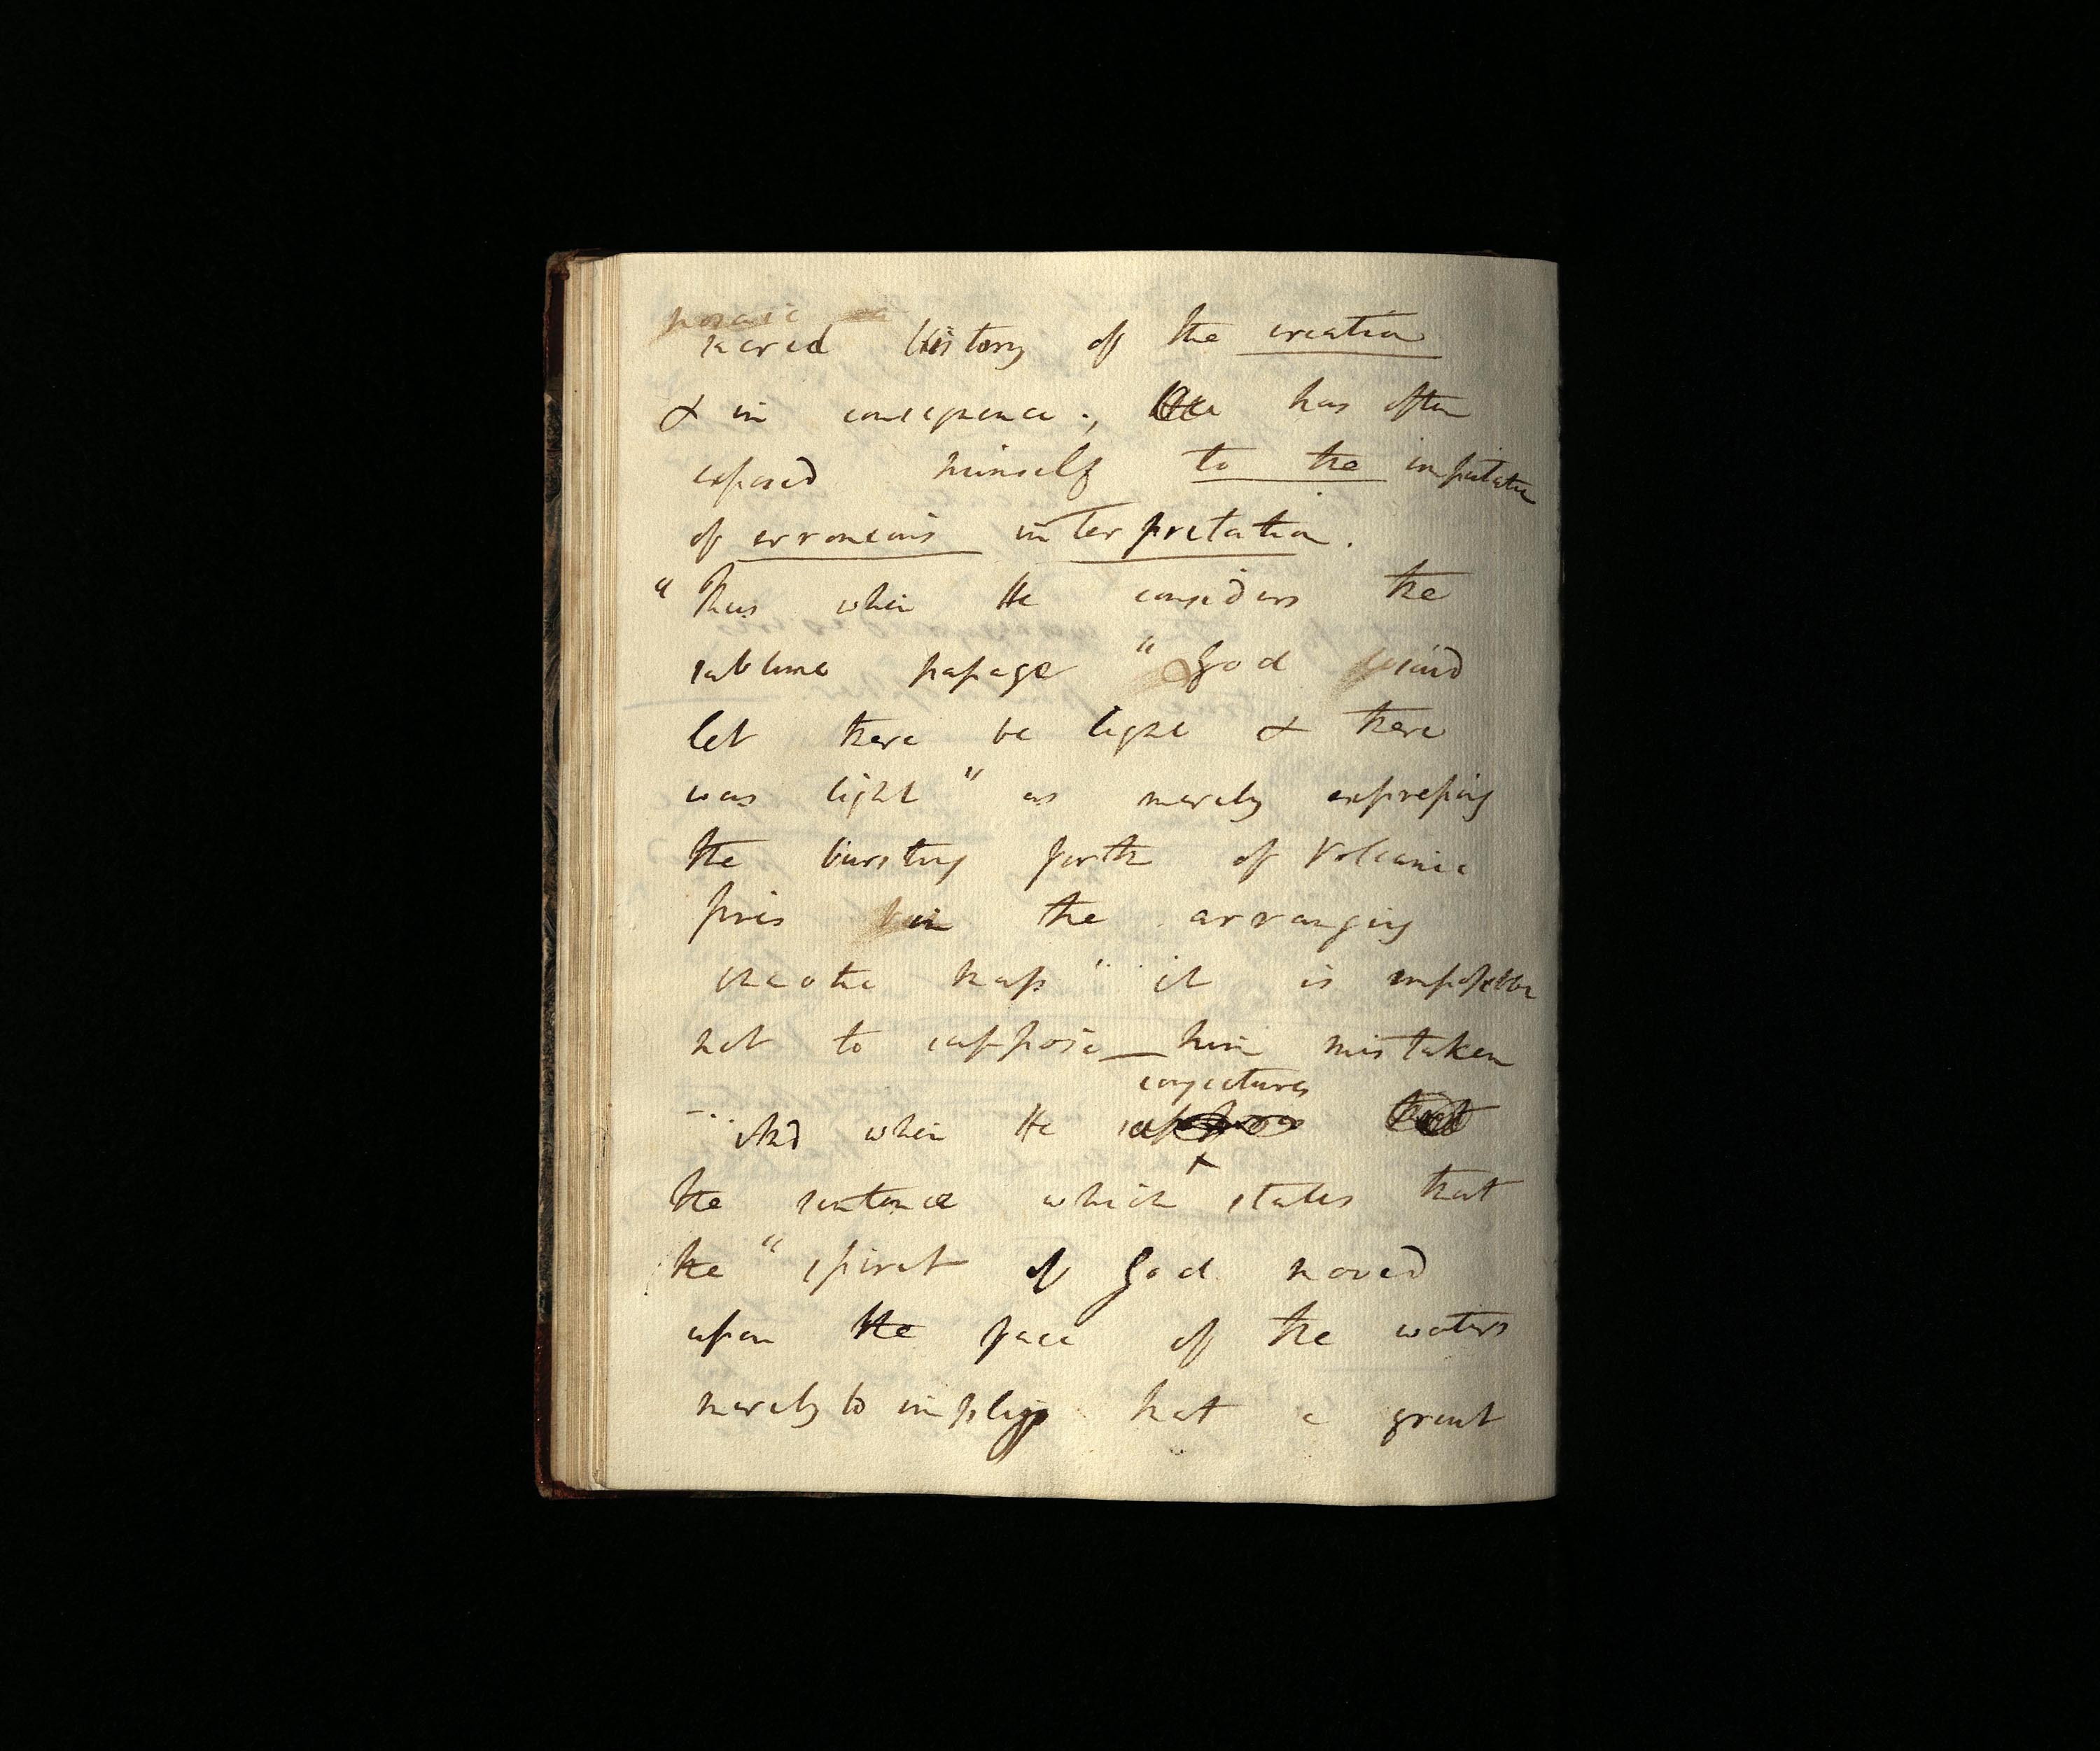 mosaic
sacred History of the creation
& in consequence; He has often
exposed himself to the imputation
of erroneous interpretation.
"Thus when He considers the
sublime passage "God said
let there be light & there
was light" as merely expressing
the bursting forth of Volcanic
fires in the arranging
chaotic mass" it is impossible
not to suppose him mistaken
conjectures
- And when He suppose that
the sentence which states that
the "spirit of God moved
upon the face of the waters
merely to imply that a great